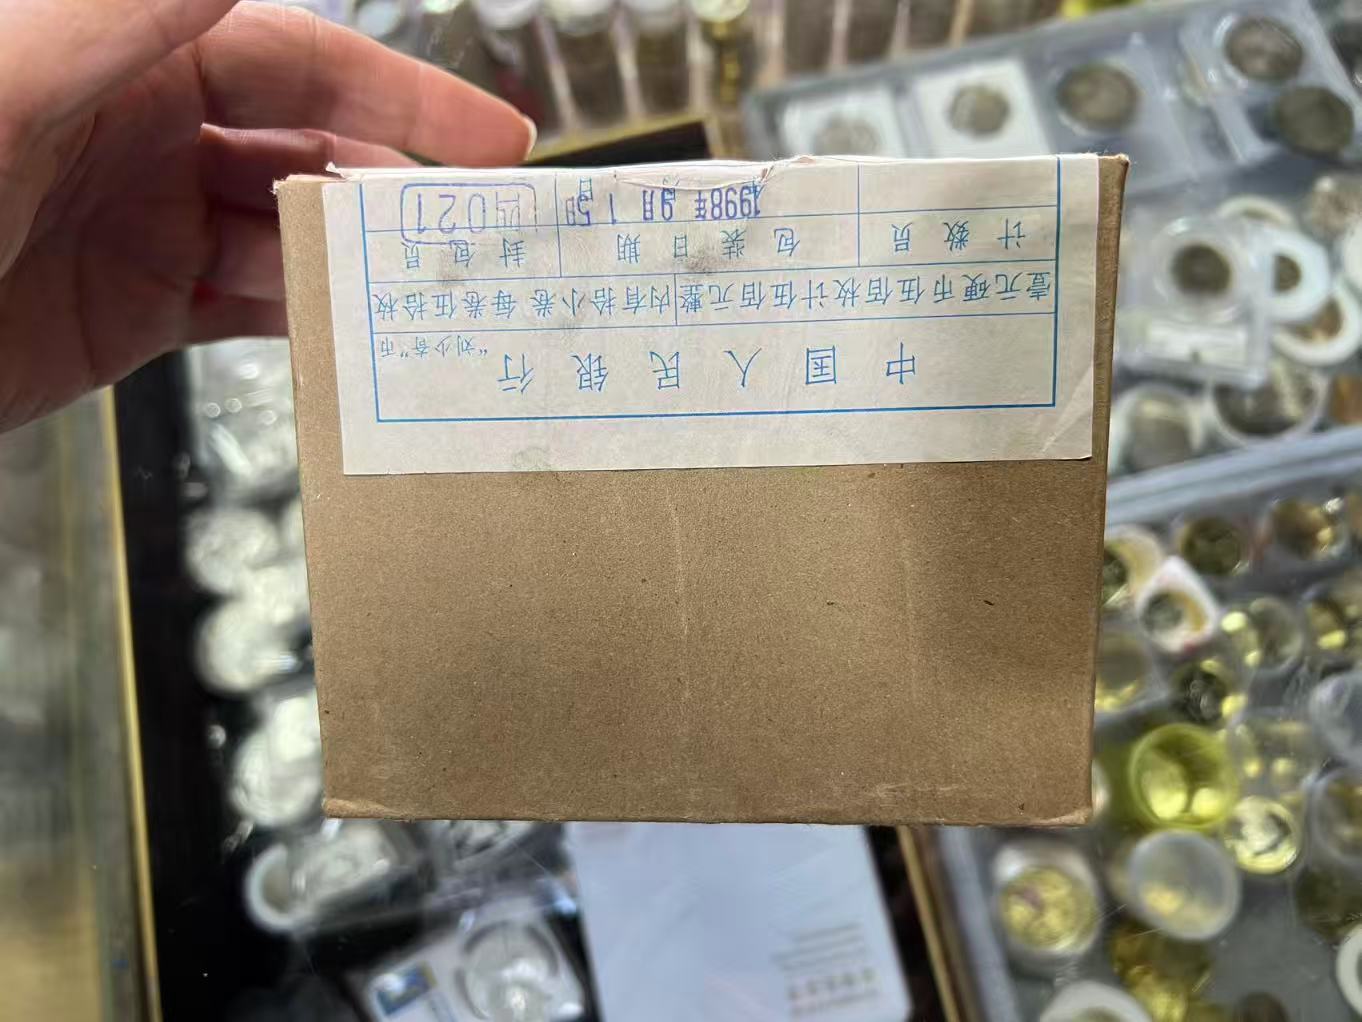 中国人民银行
“刘少奇”币
壹元硬币伍佰枚计伍佰元整 内有拾小卷 每卷伍拾枚
计数员 包装日期 封包员
1998年 9月 15日 四021